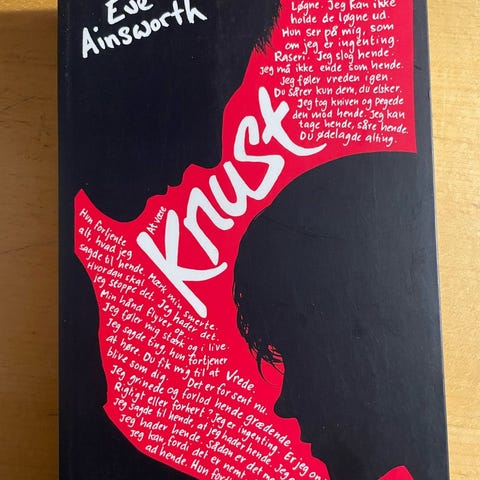 Eve
Ainsworth
Løgne. Jeg kan ikke
holde de løgne ud.
Hun ser på mig, som
om jeg er ingenting
Raseri. Jeg slog hende.
Jeg må ikke ende som hende.
Jeg føler vreden igen.
Du sårer kun dem, du elsker.
Jeg tog kniven og pegede
den mod hende. Jeg kan
tage hende, såre hende.
Du ødelagde alting.
At være
Knust
Hun fortjente
alt, hvad jeg
sagde til hende. Mærk min smerte.
Hvordan skal
jeg stoppe det. Jeg hader det.
Min hånd flyver op...
Jeg føler mig stærk og i live.
Jeg sagde ting, hun fortjener
at høre. Du fik mig til at Vrede.
blive som dig. Det er for sent nu.
Jeg grinede og forlod hende grædende.
Rigtigt eller forkert? Jeg er ingenting. Er jeg on
Jeg sagde til hende, at jeg hader hende. Jeg
Jeg hader hende. Sådan er det me
Jeg kan, fordi det er nemt
ad hende. Hun fort